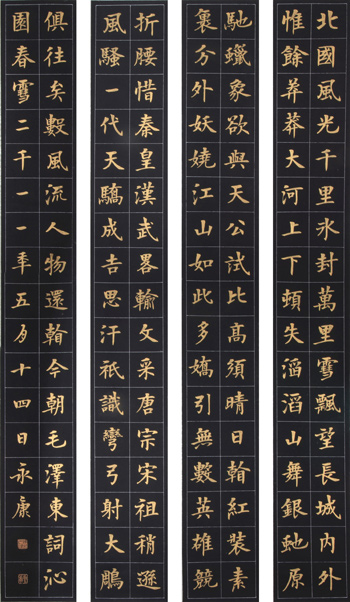 北國風光千里氷封萬里雪飄望長城內外
惟餘莽莽大河上下頓失滔滔山舞銀虵原
馳蠟象欲與天公試比高須晴日看紅裝素
裹分外妖嬈江山如此多嬌引無數英雄競
折腰惜秦皇漢武畧輸文采唐宗宋祖稍遜
風騷一代天驕成吉思汗祇識彎弓射大鵰
俱往矣數風流人物還看今朝毛澤東詞沁
園春雪二千一一年五月十四日永康